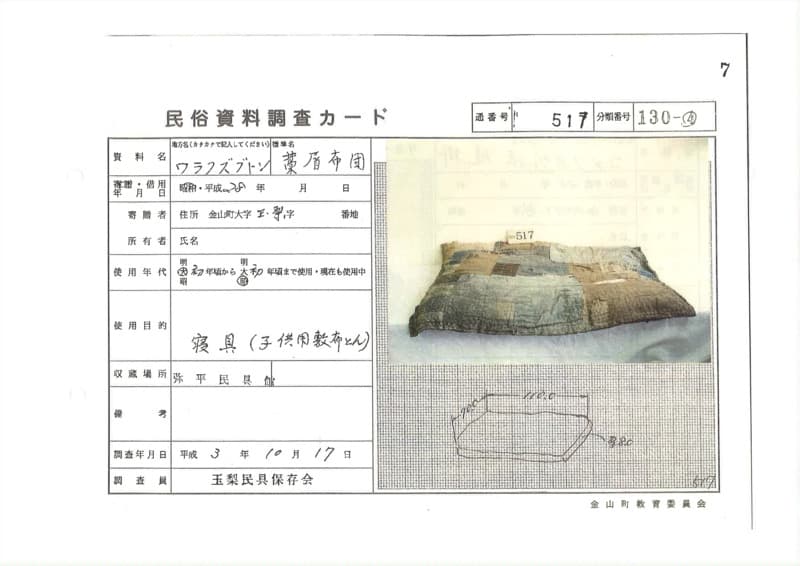 7
民俗資料調査カード
通番号 517 分類番号 130-④
資料名 地方名(カタカナで記入してください) ワラクズブトン 標準名 藁屑布団
寄贈・借用年月日 昭和・平成 28 年 月 日
寄贈者 住所 金山町大字 玉梨 字 番地
所有者 氏名
使用年代 明大昭 初年頃から 明大昭 初年頃まで使用・現在も使用中
使用目的 寝具(子供用敷布とん)
収蔵場所 弥平民具館
備考
調査年月日 平成 3 年 10 月 17 日
調査員 玉梨民具保存会
517
110.0
70.0
8.0
517
金山町教育委員会